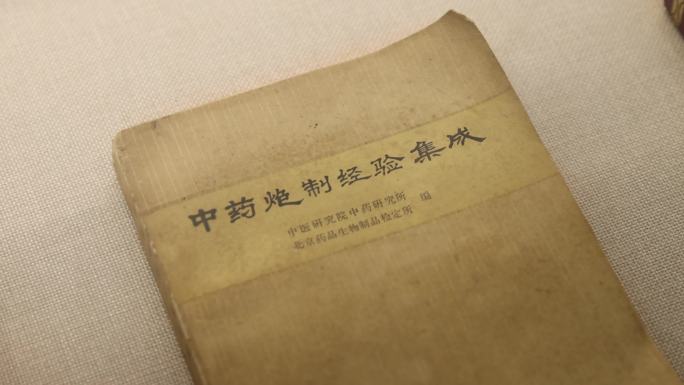 中药炮制经验集成
中医研究院中药研究所
北京药品生物制品检定所 编